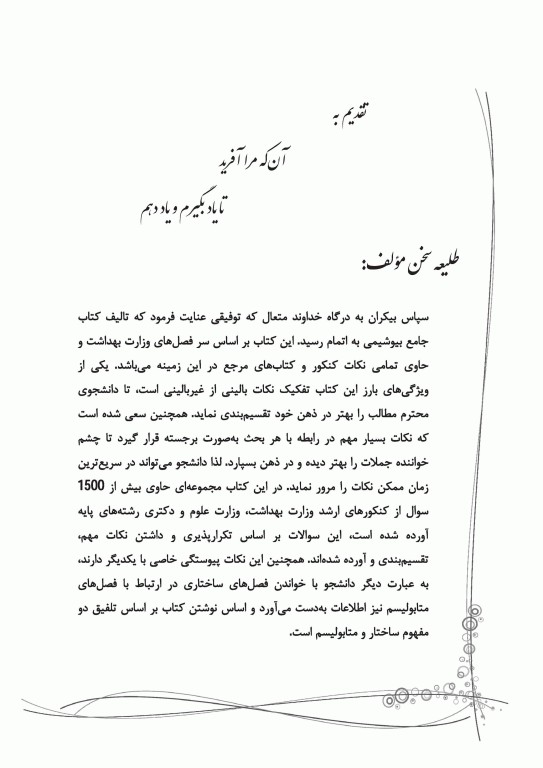 تقدیم به
آن‌که مرا آفرید
تا یاد بگیرم و یاد دهم
طلیعه سخن مؤلف:
سپاس بیکران به درگاه خداوند متعال که توفیقی عنایت فرمود که تالیف کتاب
جامع بیوشیمی به اتمام رسید. این کتاب بر اساس سر فصل‌های وزارت بهداشت و
حاوی تمامی نکات کنکور و کتاب‌های مرجع در این زمینه می‌باشد. یکی از
ویژگی‌های بارز این کتاب تفکیک نکات بالینی از غیربالینی است، تا دانشجوی
محترم مطالب را بهتر در ذهن خود تقسیم‌بندی نماید. همچنین سعی شده است
که نکات بسیار مهم در رابطه با هر بحث به‌صورت برجسته قرار گیرد تا چشم
خواننده جملات را بهتر دیده و در ذهن بسپارد. لذا دانشجو می‌تواند در سریع‌ترین
زمان ممکن نکات را مرور نماید. در این کتاب مجموعه‌ای حاوی بیش از 1500
سوال از کنکورهای ارشد وزارت بهداشت، وزارت علوم و دکتری رشته‌های پایه
آورده شده است، این سوالات بر اساس تکرارپذیری و داشتن نکات مهم،
تقسیم‌بندی و آورده شده‌اند. همچنین این نکات پیوستگی خاصی با یکدیگر دارند،
به عبارت دیگر دانشجو با خواندن فصل‌های ساختاری در ارتباط با فصل‌های
متابولیسم نیز اطلاعات به‌دست می‌آورد و اساس نوشتن کتاب بر اساس تلفیق دو
مفهوم ساختار و متابولیسم است.